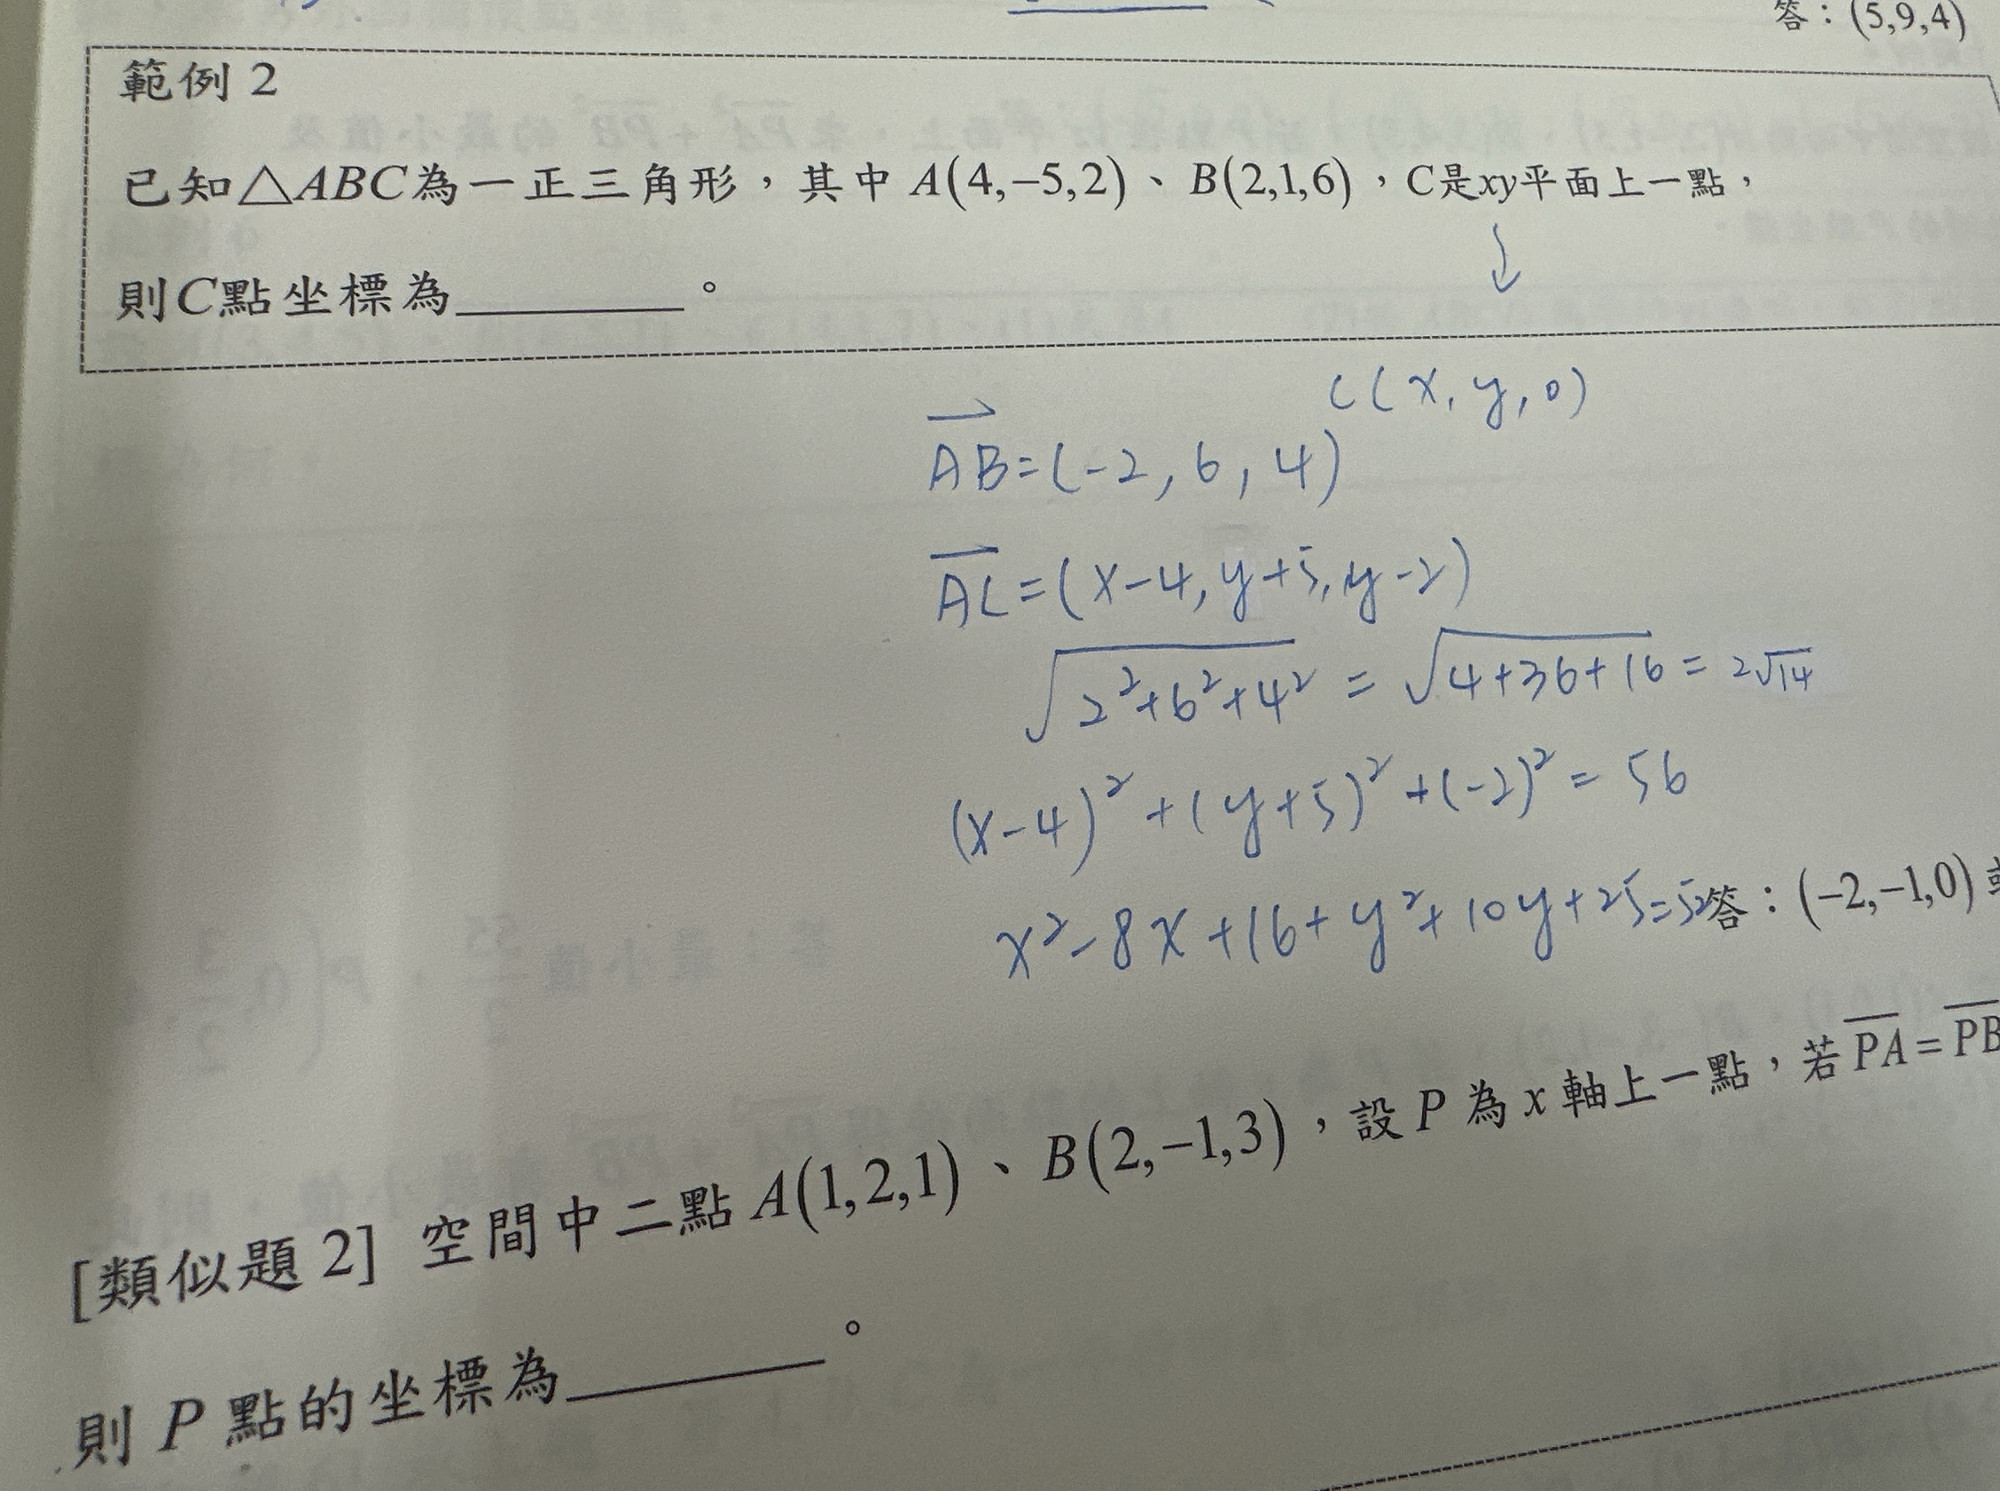 答：(5,9,4)
範例 2
已知△ABC為一正三角形，其中 A(4,−5,2)、B(2,1,6)，C是xy平面上一點，
則C點坐標為________。
C(x,y,0)
AB=(-2,6,4)
AC=(x-4,y+5,y-2)
√2²+6²+4² = √4+36+16 = 2√14
(x-4)²+(y+5)²+(-2)² = 56
x²-8x+16+y²+10y+25=52
答：(−2,−1,0)
[類似題 2] 空間中二點 A(1,2,1)、B(2,−1,3)，設 P 為 x 軸上一點，若 PA=PB
則 P 點的坐標為________。